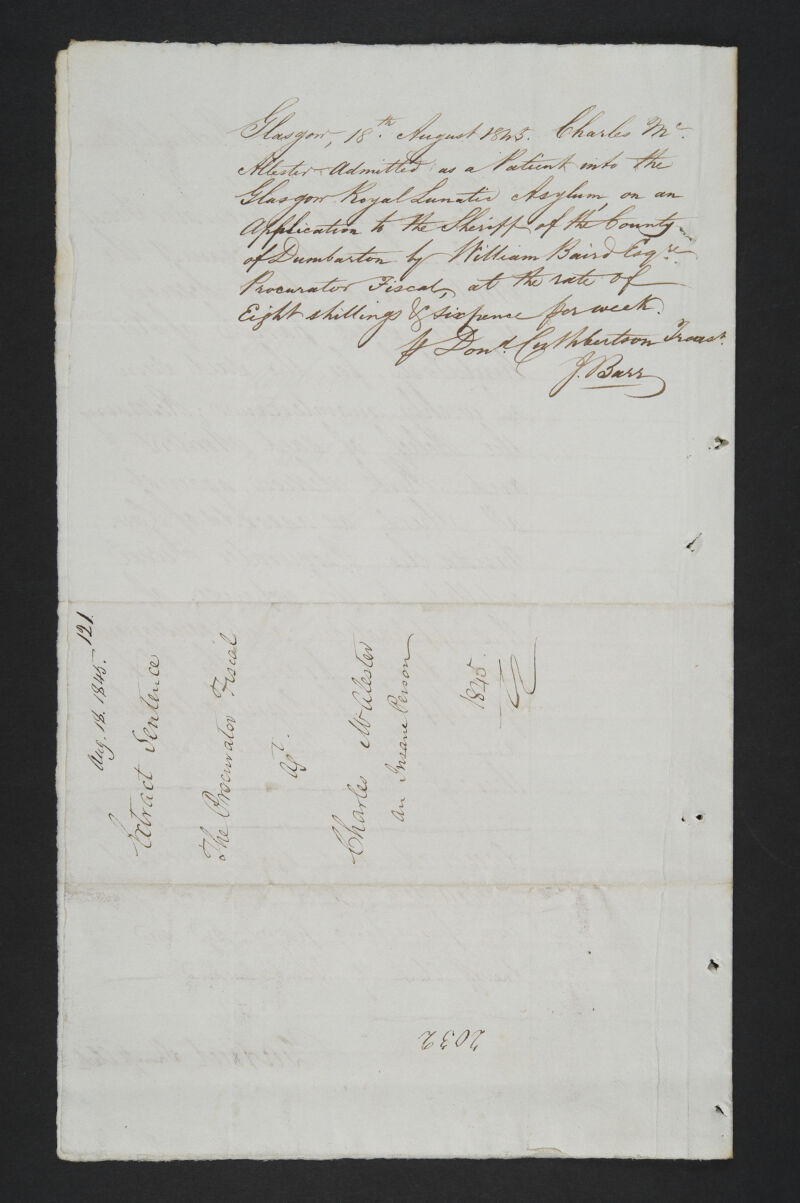 Glasgow, 18th August 1845. Charles Mc.
Alester Admitted as a Patient into the
Glasgow Royal Lunatic Asylum, on an
Application to the Sheriff of the County
of Dumbarton by William Baird Esqre.
Procurator Fiscal, at the rate of
Eight shillings & sixpence per week.
Dond. Cuthbertson Treasr.
J. Barr
121
Aug. 18. 1845.
Extract Sentence
The Procurator Fiscal
agt.
Charles McAlester
an Insane Person
1845.
2032